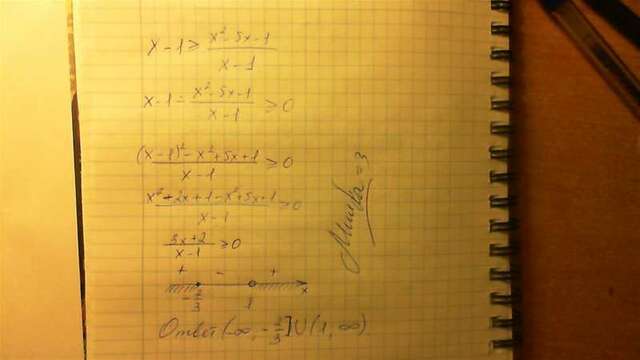 x-1 ≥ x²-5x-1 / x-1
x-1 - x²-5x-1 / x-1 ≥ 0
(x-1)² - x²+5x+1 / x-1 ≥ 0
x²+2x+1-x²+5x+1 / x-1 ≥ 0
3x+2 / x-1 ≥ 0
+ - +
-2/3 1 x
Ответ (-∞, -2/3] U (1, ∞)
=3